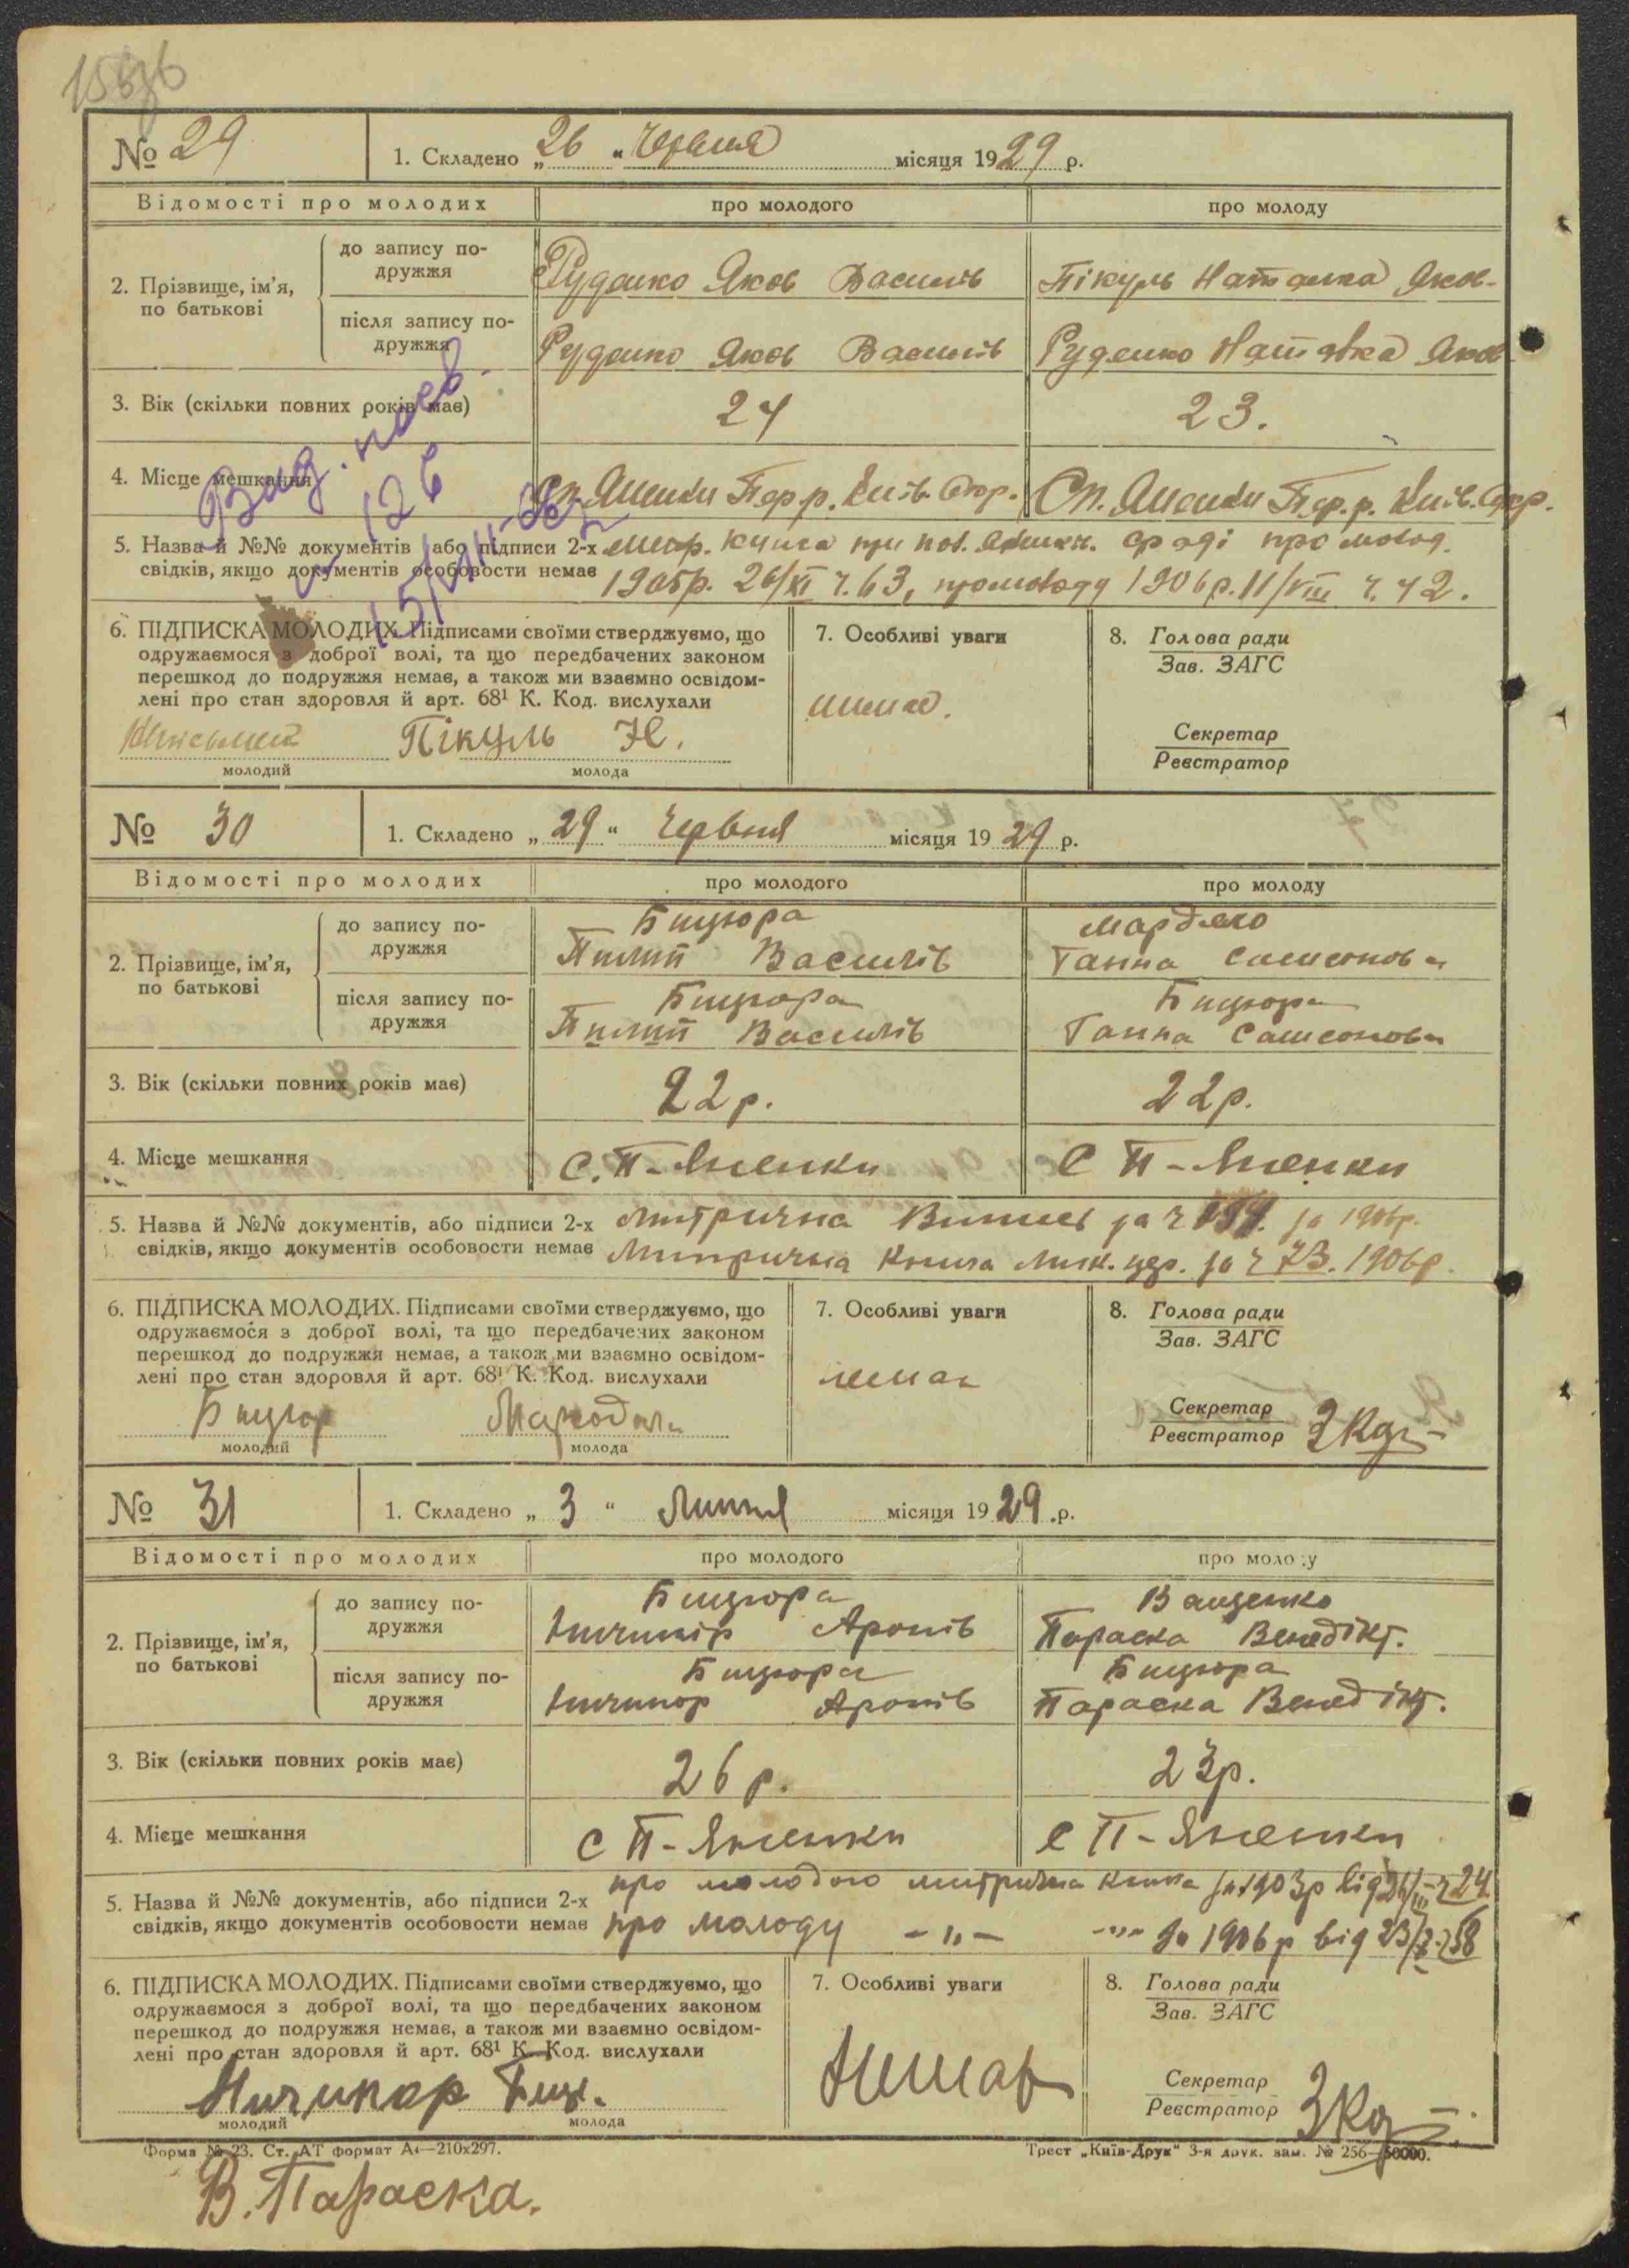 № 29 1. Складено „26" Червня місяця 1929 р.
Відомості про молодих про молодого про молоду
2. Прізвище, ім'я, по батькові
до запису по-
дружжя
Руденко Яков Василів Пікуль Наталка Яков-
після запису по-
дружжя
Руденко Яков Василів Руденко Наталка Яков
3. Вік (скільки повних років має) 24 23.
Вид. посв.
126
4. Місце мешкання Сп. Яшики Пер. р. Київ. Окр. Сп. Яшики Пер. р. Київ. Окр.
5. Назва й №№ документів, або підписи 2-х метр. книга при сраді про молод.
свідків, якщо документів особовости немає 1905р. 26/XI ч. 63, про молоду 1906 р. 11/VIII ч. 42.
6. ПІДПИСКА МОЛОДИХ. Підписами своїми стверджуємо, що
одружаємося з доброї волі, та що передбачених законом
перешкод до подружжя немає, а також ми взаємно освідом-
лені про стан здоровля й арт. 68¹ К. Код. вислухали
Пікуль Н.
молодий молода
7. Особливі уваги
немає.
8. Голова ради
Зав. ЗАГС
Секретар
Реєстратор
№ 30 1. Складено „29" Червня місяця 1929 р.
Відомості про молодих про молодого про молоду
2. Прізвище, ім'я, по батькові
до запису по-
дружжя
Бицюра
Пилип Василів Ганна Самсонова
після запису по-
дружжя
Бицюра Бицюра
Пилип Василів Ганна Самсонова
3. Вік (скільки повних років має) 22р. 22р.
4. Місце мешкання С. П-Яшенки С П-Яшенки
5. Назва й №№ документів, або підписи 2-х Митрична Випись за ч за 1906р.
свідків, якщо документів особовости немає Митрична Книга Мик. цер. за ч 73. 1906р.
6. ПІДПИСКА МОЛОДИХ. Підписами своїми стверджуємо, що
одружаємося з доброї волі, та що передбачених законом
перешкод до подружжя немає, а також ми взаємно освідом-
лені про стан здоровля й арт. 68¹ К. Код. вислухали
Бицюр
молодий молода
7. Особливі уваги
немає
8. Голова ради
Зав. ЗАГС
Секретар
Реєстратор
№ 31 1. Складено „3" Липня місяця 1929 р.
Відомості про молодих про молодого про молоду
2. Прізвище, ім'я, по батькові
до запису по-
дружжя
Бицюра Ващенко
Ничипір Аронів Параска Венедікт.
після запису по-
дружжя
Бицюра Бицюра
Ничипор Аронів Параска Венедікт.
3. Вік (скільки повних років має) 26 р. 23р.
4. Місце мешкання С П-Яшенки С П-Яшенки
5. Назва й №№ документів, або підписи 2-х про молодого митрична книга за 1903р від ч 24
свідків, якщо документів особовости немає про молоду -"- -"- за 1906 р від 23/X ч 58
6. ПІДПИСКА МОЛОДИХ. Підписами своїми стверджуємо, що
одружаємося з доброї волі, та що передбачених законом
перешкод до подружжя немає, а також ми взаємно освідом-
лені про стан здоровля й арт. 68¹ К. Код. вислухали
Ничипор Биц.
молодий молода
7. Особливі уваги
Нимає
8. Голова ради
Зав. ЗАГС
Секретар
Реєстратор
Форма № 23. Ст. АТ формат А4—210х297. Трест „Київ-Друк" 3-я друк. зам. № 256—50000.
В. Параска.